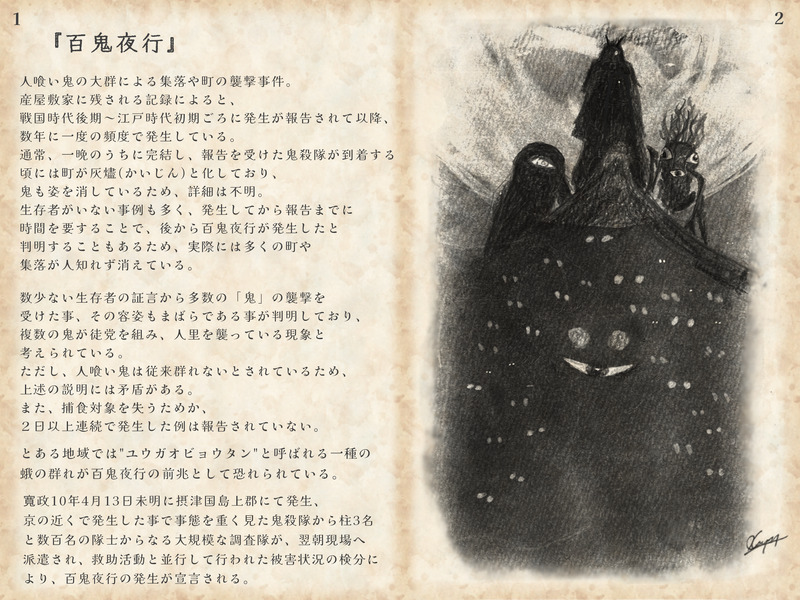 1
『百鬼夜行』
人喰い鬼の大群による集落や町の襲撃事件。
産屋敷家に残される記録によると、
戦国時代後期～江戸時代初期ごろに発生が報告されて以降、
数年に一度の頻度で発生している。
通常、一晩のうちに完結し、報告を受けた鬼殺隊が到着する
頃には町が灰燼(かいじん)と化しており、
鬼も姿を消しているため、詳細は不明。
生存者がいない事例も多く、発生してから報告までに
時間を要することで、後から百鬼夜行が発生したと
判明することもあるため、実際には多くの町や
集落が人知れず消えている。
数少ない生存者の証言から多数の「鬼」の襲撃を
受けた事、その容姿もまばらである事が判明しており、
複数の鬼が徒党を組み、人里を襲っている現象と
考えられている。
ただし、人喰い鬼は従来群れないとされているため、
上述の説明には矛盾がある。
また、捕食対象を失うためか、
２日以上連続で発生した例は報告されていない。
とある地域では"ユウガオビョウタン"と呼ばれる一種の
蛾の群れが百鬼夜行の前兆として恐れられている。
寛政10年4月13日未明に摂津国島上郡にて発生、
京の近くで発生した事で事態を重く見た鬼殺隊から柱3名
と数百名の隊士からなる大規模な調査隊が、翌朝現場へ
派遣され、救助活動と並行して行われた被害状況の検分に
より、百鬼夜行の発生が宣言される。
2